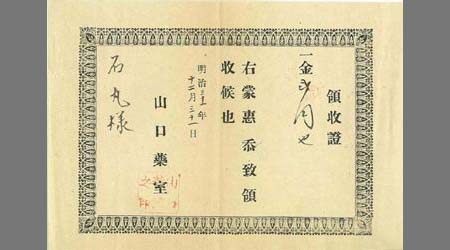 領收證
一金弐円也
右蒙惠忝致領
收候也
明治三十年
十二月三十一日
山口藥室
石丸様